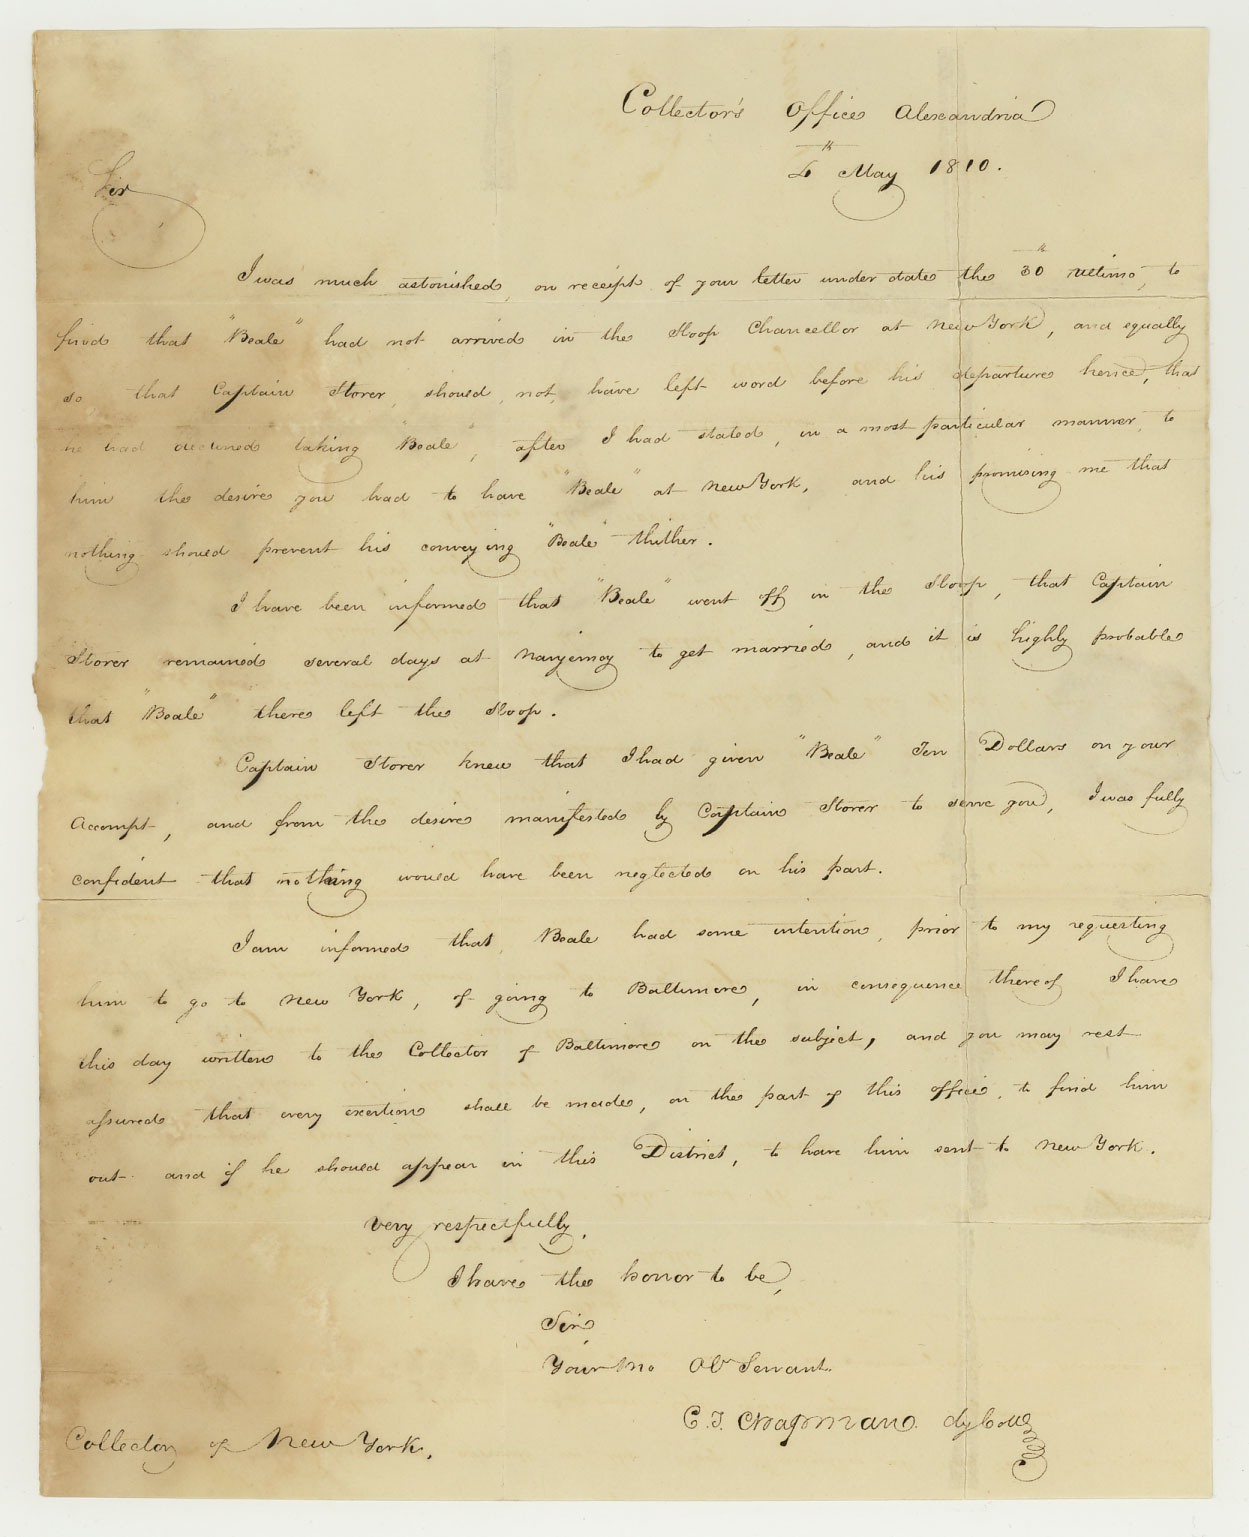 Collector's Office Alexandria
4th May 1810.
Sir
I was much astonished, on receipt of your letter under date the 30th ultimo, to
find that "Beale" had not arrived in the Sloop Chancellor at New York, and equally
so that Captain Storer, should, not, have left word before his departure hence, that
he had declined taking "Beale", after I had stated, in a most particular manner, to
him the desire you had to have "Beale" at New York, and his promising me that
nothing should prevent his conveying "Beale" thither.
I have been informed that "Beale" went off in the Sloop, that Captain
Storer remained several days at Nanjemoy to get married, and it is highly probable
that "Beale" there left the Sloop.
Captain Storer knew that I had given "Beale" Ten Dollars on your
Accompt, and from the desire manifested by Captain Storer to serve you, I was fully
confident that nothing would have been neglected on his part.
I am informed that, Beale had some intention, prior to my requesting
him to go to New York, of going to Baltimore, in consequence thereof I have
this day written to the Collector of Baltimore on the subject, and you may rest
assured that every exertion shall be made, on the part of this office, to find him
out and if he should appear in this District, to have him sent to New York.
Very respectfully,
I have the honor to be,
Sir
Your Mo Obt Servant.
C. T. Chapman. dy Coll
Collector of New York.